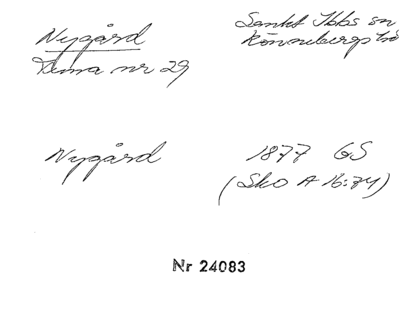 Nygård
Sankt Ibbs sn
Denna nr 29
Rönnebergs hd
Nygård
1877 GS
(Sko A 16:74)
Nr 24083